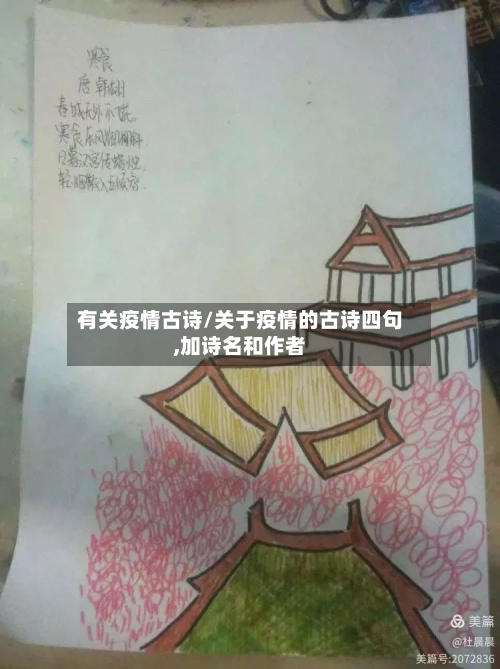 寒食
唐 韩翃
春城无处不
寒食东风
日暮汉宫传蜡烛
轻烟散入五侯家
有关疫情古诗/关于疫情的古诗四句
,加诗名和作者
美篇
@杜晨晨
美篇号:2072836